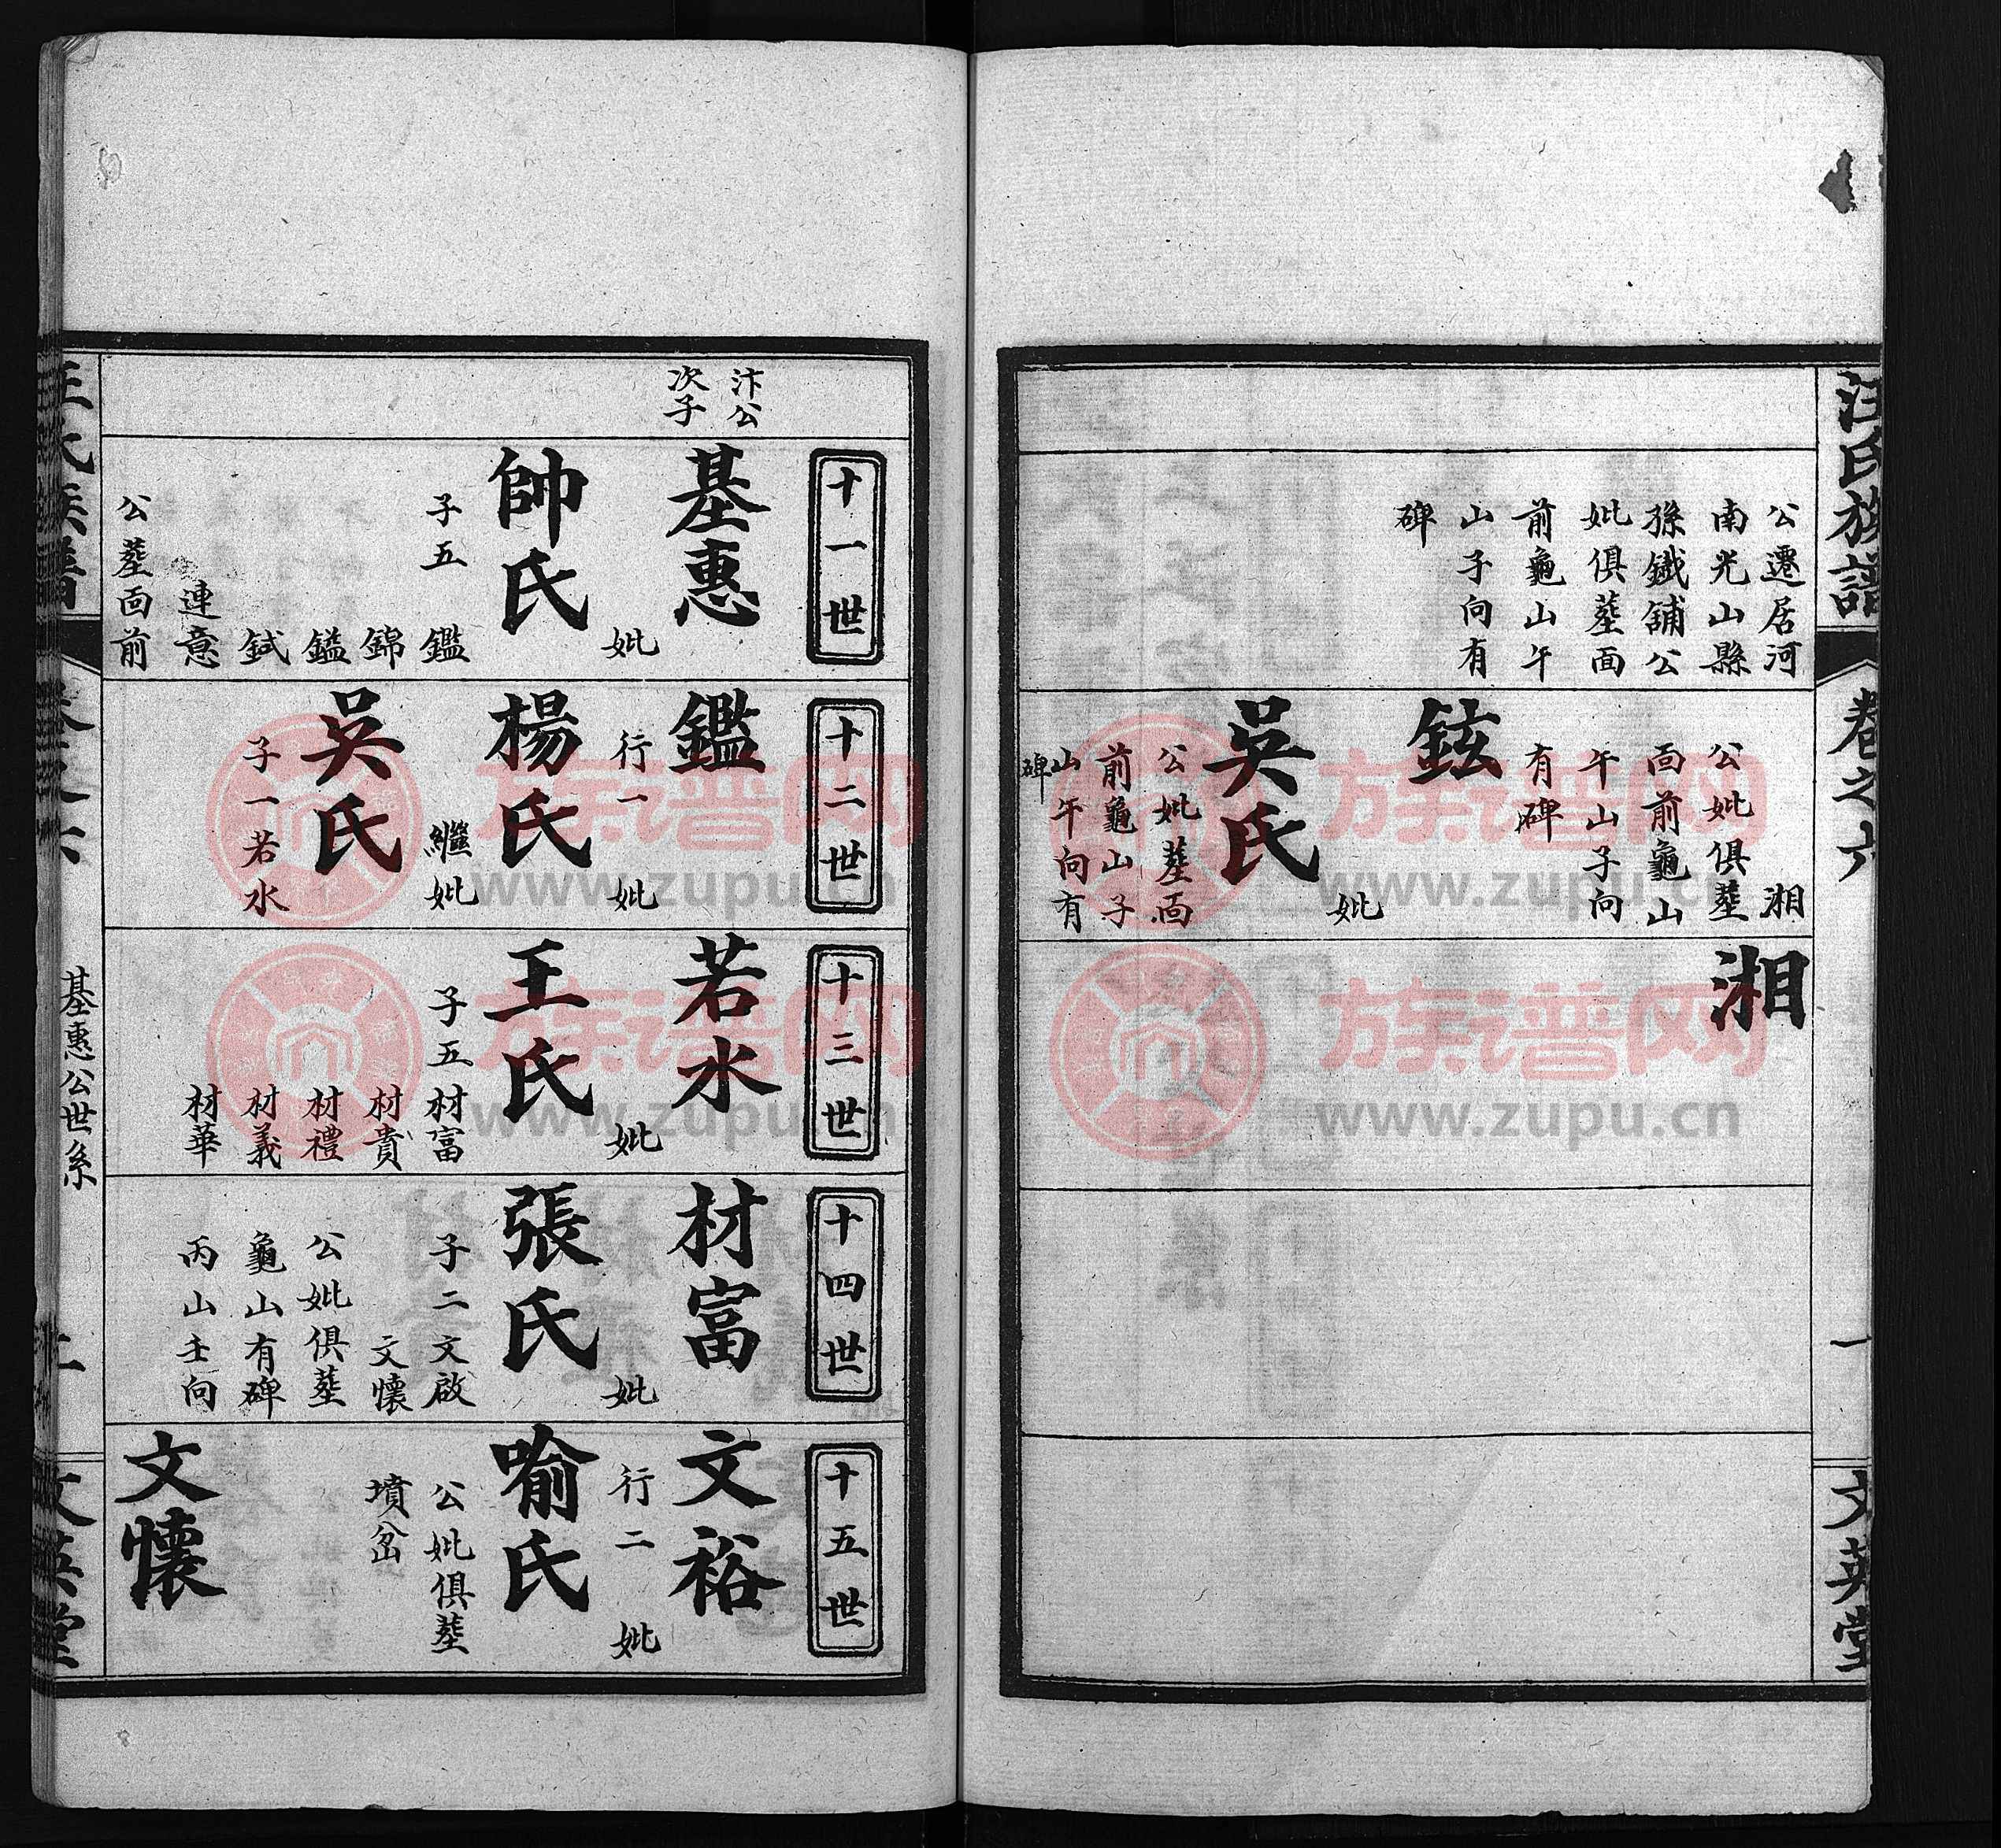 汪氏族譜
卷之六
一
文英堂
公遷居河
南光山縣
孫鐵舖公
妣俱塟面
前龜山午
山子向有
碑
湘
公妣俱塟
面前龜山
午山子向
有碑
鉉
妣
吳氏
公妣塟面
前龜山子
山午向有
碑
湘
汴公
次子
十一世
基惠
妣
帥氏
子五
鑑
錦
鎰
鉽
連意
公塟面前
十二世
鑑
行一 妣
楊氏
繼妣
吳氏
子一若水
十三世
若水
妣
王氏
子五材富
材貴
材禮
材義
材華
十四世
材富
妣
張氏
子二文啟
文懷
公妣俱塟
龜山有碑
丙山壬向
十五世
文裕
行二 妣
喻氏
公妣俱塟
墳㟷
文懷
基惠公世系
文英堂
族谱网
www.zupu.cn
族谱网
www.zupu.cn
族谱网
www.zupu.cn
族谱网
www.zupu.cn